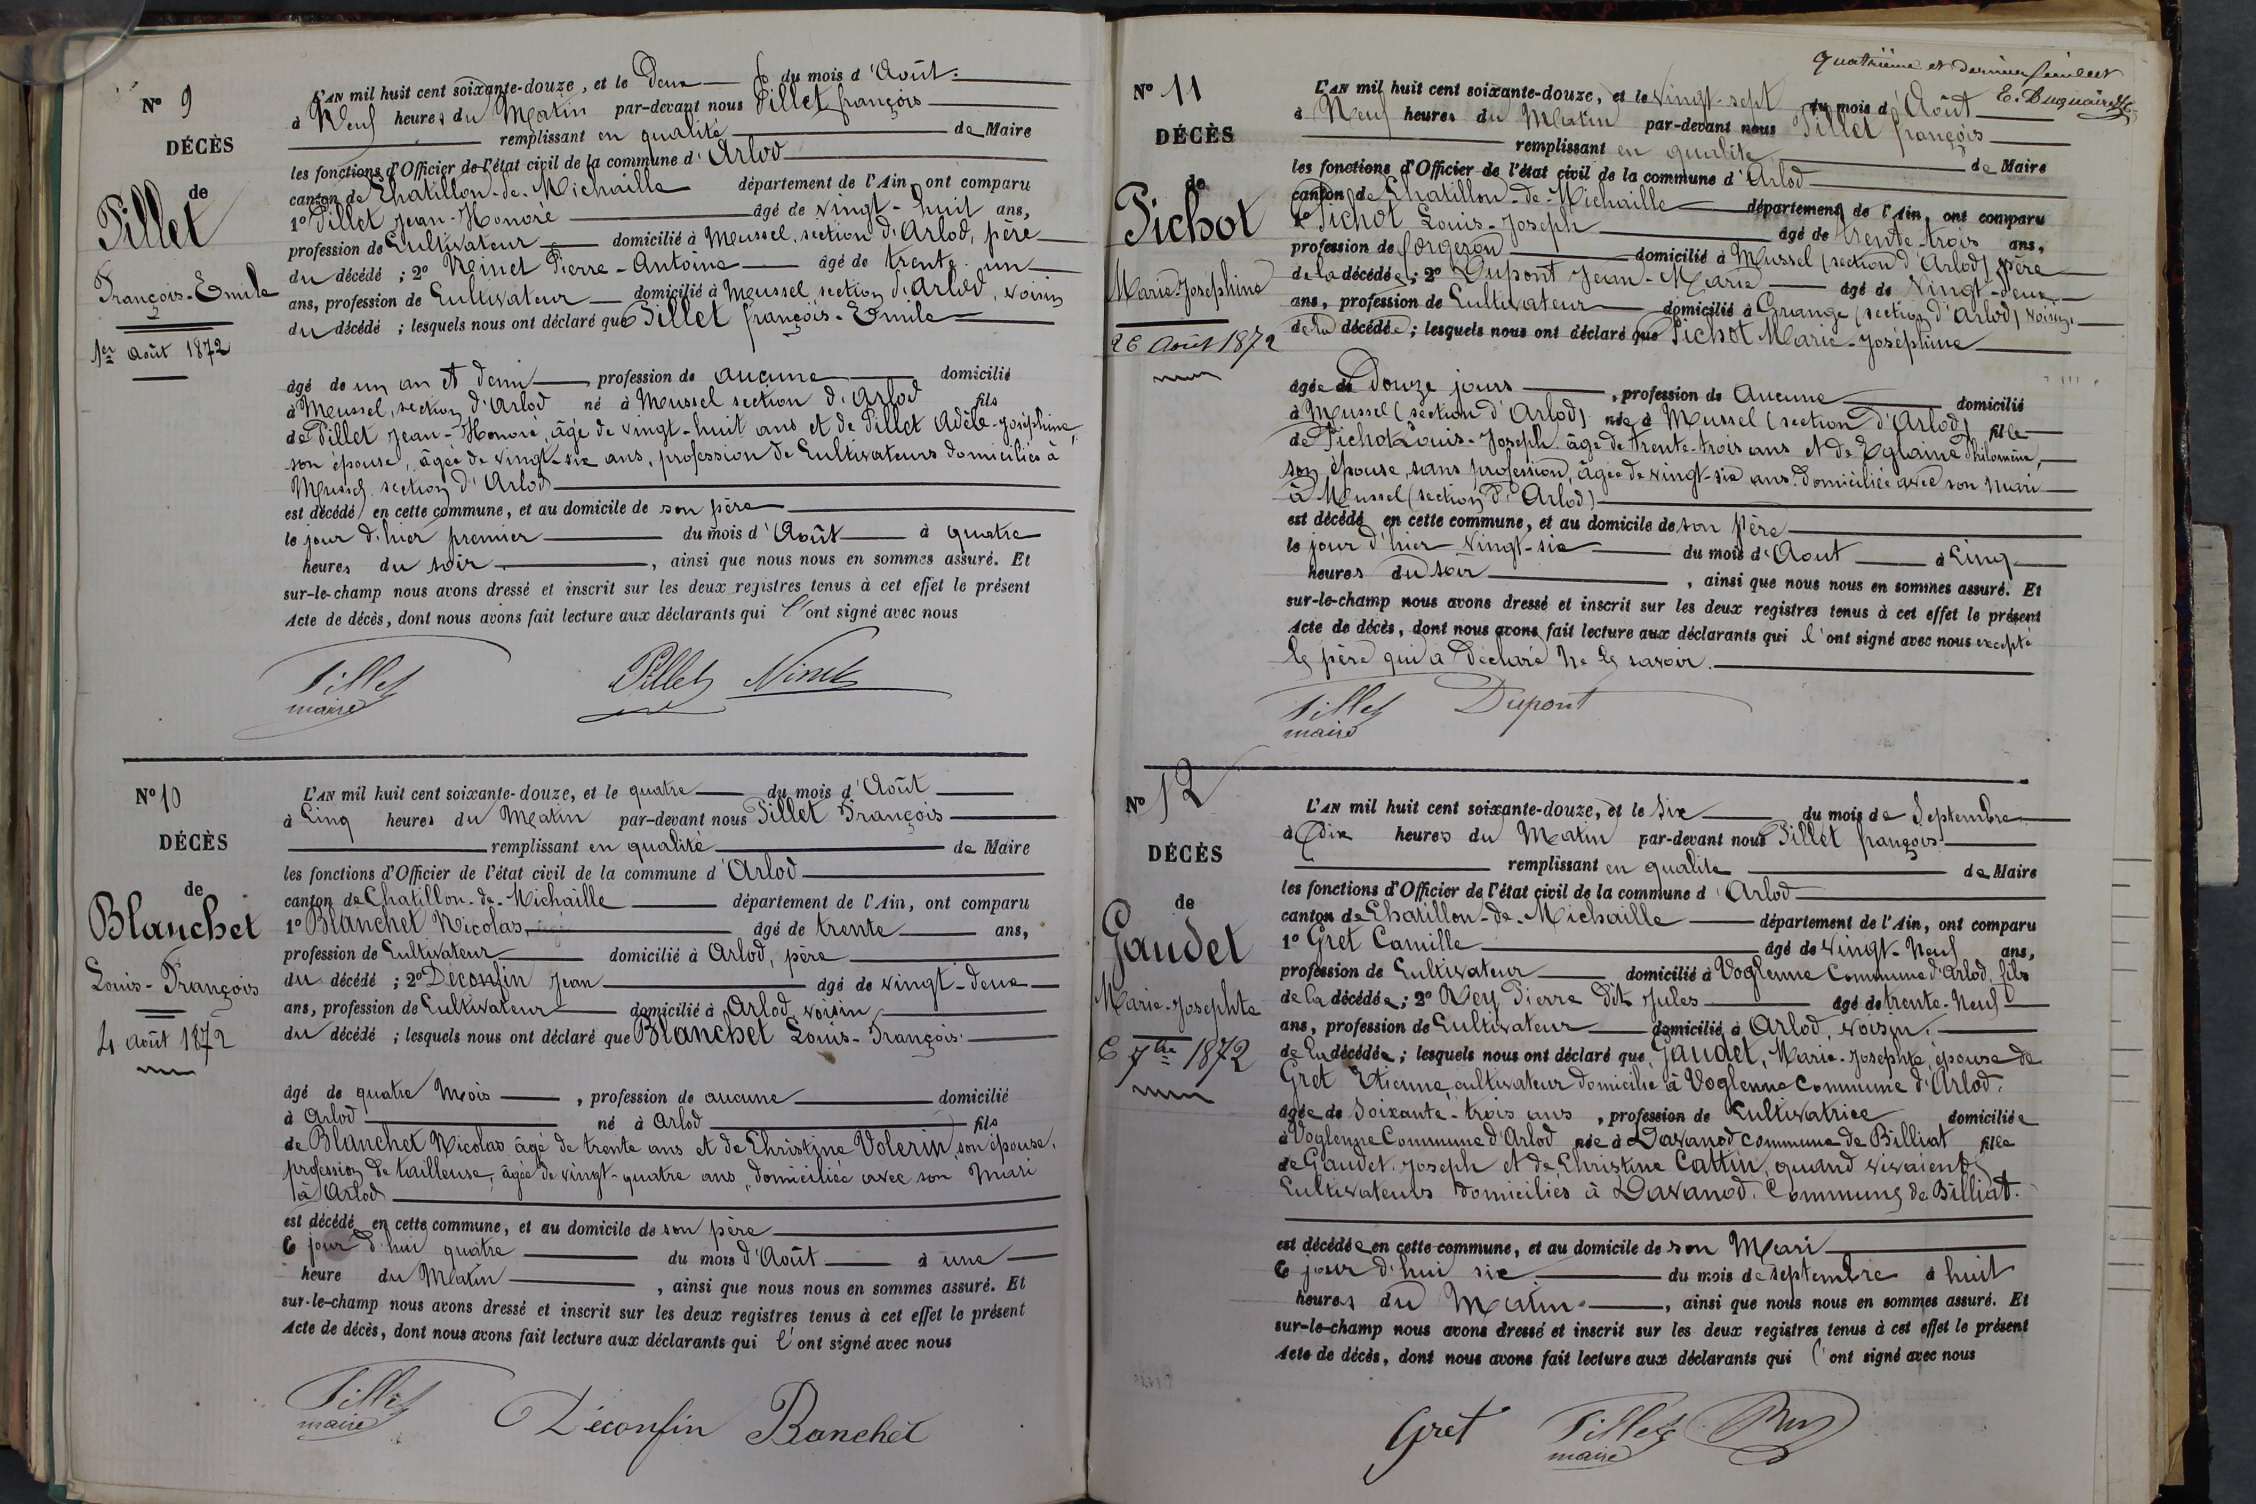 N° 9
DÉCÈS
de
Pillet
François-Emile
1er août 1872
L'AN mil huit cent soixante-douze, et le Deux du mois d'Août
à Neuf heures du Matin par-devant nous Pillet françois
remplissant en qualité de Maire
les fonctions d'Officier de l'état civil de la commune d'Arlod
canton de Chatillon-de-Michaille département de l'Ain, ont comparu
1° Pillet Jean-Honoré âgé de vingt-huit ans,
profession de Cultivateur domicilié à Meussel, section d'Arlod, père
du décédé ; 2° Ninet Pierre-Antoine âgé de trente un
ans, profession de Cultivateur domicilié à Meussel section d'Arlod, voisin
du décédé ; lesquels nous ont déclaré que Pillet françois-Emile
âgé de un an et demi, profession de aucune domicilié
à Meussel, section d'Arlod né à Meussel section d'Arlod fils
de Pillet Jean-Honoré, âgé de vingt-huit ans et de Pillet Adèle-Joséphine,
son épouse, âgée de vingt-six ans, profession de Cultivateurs domiciliés à
Meussel section d'Arlod
est décédé en cette commune, et au domicile de son père
le jour d'hier premier du mois d'Août à quatre
heures du soir, ainsi que nous nous en sommes assuré. Et
sur-le-champ nous avons dressé et inscrit sur les deux registres tenus à cet effet le présent
Acte de décès, dont nous avons fait lecture aux déclarants qui l'ont signé avec nous
Pillet Pillet Ninet
maire
N° 10
DÉCÈS
de
Blanchet
Louis-François
4 août 1872
L'AN mil huit cent soixante-douze, et le quatre du mois d'Août
à Cinq heures du Matin par-devant nous Pillet François
remplissant en qualité de Maire
les fonctions d'Officier de l'état civil de la commune d'Arlod
canton de Chatillon-de-Michaille département de l'Ain, ont comparu
1° Blanchet Nicolas, âgé de trente ans,
profession de Cultivateur domicilié à Arlod, père
du décédé ; 2° Déconfin Jean âgé de vingt-deux
ans, profession de Cultivateur domicilié à Arlod voisin
du décédé ; lesquels nous ont déclaré que Blanchet Louis-François
âgé de quatre Mois, profession de aucune domicilié
à Arlod né à Arlod fils
de Blanchet Nicolas âgé de trente ans et de Christine Volerin, son épouse,
profession de tailleuse, âgée de vingt-quatre ans, domiciliée avec son Mari
à Arlod
est décédé en cette commune, et au domicile de son père
C jour d'hui quatre du mois d'Août à une
heure du Matin, ainsi que nous nous en sommes assuré. Et
sur-le-champ nous avons dressé et inscrit sur les deux registres tenus à cet effet le présent
Acte de décès, dont nous avons fait lecture aux déclarants qui l'ont signé avec nous
Pillet Déconfin Banchet
maire
Quatrième et dernier feuillet
N° 11
DÉCÈS
de
Pichot
Marie-Joséphine
26 Août 1872
L'AN mil huit cent soixante-douze, et le vingt-sept du mois d'Août
à Neuf heures du Matin par-devant nous Pillet françois
remplissant en qualité de Maire
les fonctions d'Officier de l'état civil de la commune d'Arlod
canton de Chatillon-de-Michaille département de l'Ain, ont comparu
1° Pichot Louis-Joseph âgé de trente-trois ans,
profession de forgeron domicilié à Mussel (section d'Arlod) père
de la décédée ; 2° Dupont Jean-Marie âgé de vingt-deux
ans, profession de Cultivateur domicilié à Grange (section d'Arlod) voisin
de la décédée ; lesquels nous ont déclaré que Pichot Marie-Joséphine
âgée de Douze jours, profession de Aucune domicilié
à Mussel (section d'Arlod) née à Mussel (section d'Arlod) fille
de Pichot Louis-Joseph âgé de trente-trois ans et de Eglaine Philomène,
son épouse, sans profession, âgée de vingt-six ans domiciliée avec son mari
à Mussel (section d'Arlod)
est décédé en cette commune, et au domicile de son Père
le jour d'hier vingt-six du mois d'Aout à Cinq
heures du soir, ainsi que nous nous en sommes assuré. Et
sur-le-champ nous avons dressé et inscrit sur les deux registres tenus à cet effet le présent
Acte de décès, dont nous avons fait lecture aux déclarants qui l'ont signé avec nous excepté
le père qui a déclaré ne le savoir.
Pillet Dupont
maire
N° 12
DÉCÈS
de
Gaudet
Marie-Josephte
6 7bre 1872
L'AN mil huit cent soixante-douze, et le Six du mois de Septembre
à Dix heures du Matin par-devant nous Pillet françois
remplissant en qualité de Maire
les fonctions d'Officier de l'état civil de la commune d'Arlod
canton de Chatillon-de-Michaille département de l'Ain, ont comparu
1° Gret Camille âgé de vingt-Neuf ans,
profession de Cultivateur domicilié à Voglenne Commune d'Arlod, fils
de la décédée ; 2° Rey Pierre dit Jules âgé de trente-Neuf
ans, profession de Cultivateur domicilié à Arlod, voisin
de la décédée ; lesquels nous ont déclaré que Gaudet, Marie-Josephte, épouse de
Gret Etienne cultivateur domicilié à Voglenne Commune d'Arlod.
âgée de Soixante-trois ans, profession de Cultivatrice domiciliée
à Voglenne Commune d'Arlod née à Davanod commune de Billiat fille
de Gaudet Joseph et de Christine Cattin, quand vivaient
Cultivateurs domiciliés à Davanod, Commune de Billiat.
est décédée en cette commune, et au domicile de son Mari
C jour d'hui six du mois de septembre à huit
heures du Matin, ainsi que nous nous en sommes assuré. Et
sur-le-champ nous avons dressé et inscrit sur les deux registres tenus à cet effet le présent
Acte de décès, dont nous avons fait lecture aux déclarants qui l'ont signé avec nous
Gret Pillet Rey
maire